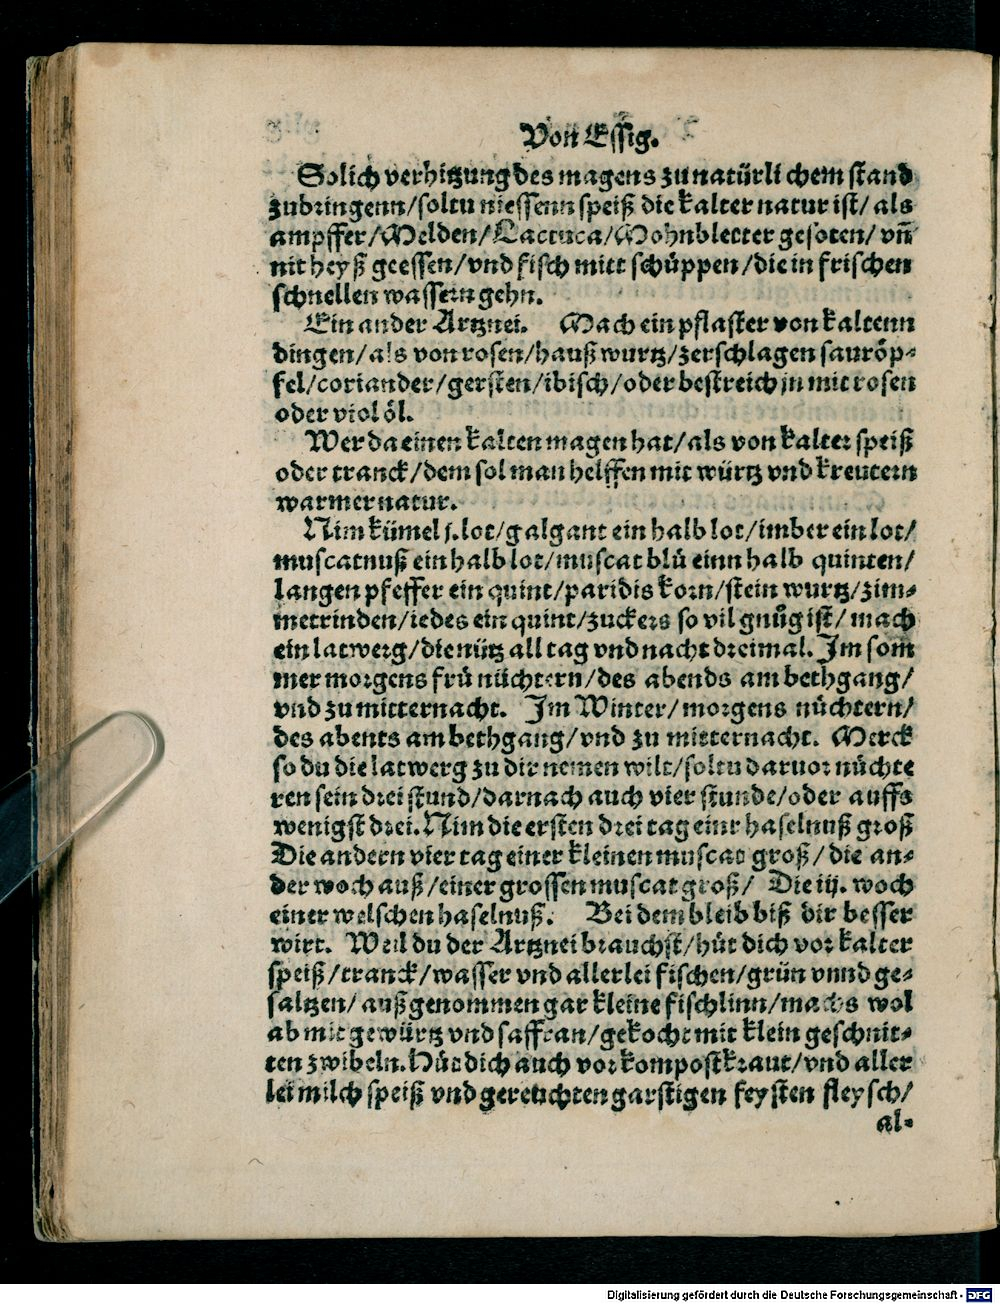 Von Essig.
Solich verhitzung des magens zu natürlichem stand
zubringenn/soltu niessenn speiß die kalter natur ist/ als
ampffer/Melden/Lactuca/Mohnbletter gesoten/vñ
nit heyß geessen/vnd fisch mitt schüppen/die in frischen
schnellen wassern gehn.
Ein ander Artznei. Mach ein pflaster von kaltenn
dingen/als von rosen/haußwurtz/zerschlagen sauröp-
fel/coriander/gersten/ibisch/oder bestreich jn mit rosen
oder viol öl.
Wer da einen kalten magen hat/als von kalter speiß
oder tranck/dem sol man helffen mit würtz vnd kreutern
warmer natur.
Nim kümel j.lot/galgant ein halb lot/imber ein lot/
muscatnuß ein halb lot/muscat blů einn halb quinten/
langen pfeffer ein quint/paridis korn/stein wurtz/zim-
metrinden/iedes ein quint/zuckers so vil gnůg ist/ mach
ein latwerg/die nütz all tag vnd nacht dreimal. Im som
mer morgens frů nüchtern/des abends am bethgang/
vnd zu mitternacht. Im Winter/morgens nüchtern/
des abents am bethgang/vnd zu mitternacht. Merck
so du die latwerg zu dir nemen wilt/soltu daruor nüchte
ren sein drei stund/darnach auch vier stunde/oder auffs
wenigst drei. Nim die ersten drei tag einr haselnuß groß
Die andern vier tag einer kleinen muscat groß/ die an-
der woch auß/einer grossen muscat groß/ Die iij. woch
einer welschen haselnuß. Bei dem bleib biß dir besser
wirt. Weil du der Artznei brauchst/hůt dich vor kalter
speiß/tranck/wasser vnd allerlei fischen/grün vnnd ge-
saltzen/ außgenommen gar kleine fischlinn/machs wol
ab mit gewürtz vnd saffran/gekocht mit klein geschnit-
ten zwibeln. Hüt dich auch vor kompostkraut/vnd aller
lei milch speiß vnd gereuchten garstigen feysten fleysch/
al-
Digitalisierung gefördert durch die Deutsche Forschungsgemeinschaft - DFG